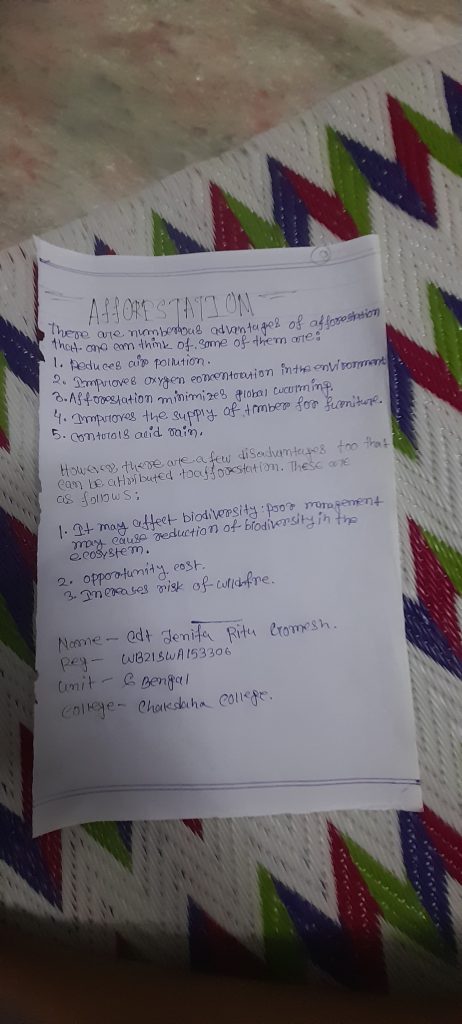 AFFORESTATION
There are numberous advantages of afforestation
that one can think of. some of them are:
1. Reduces air pollution.
2. Improves oxygen concentration in the environment
3. Afforestation minimizes global warming.
4. Improves the supply of timber for furniture.
5. controls acid rain.
However there are a few disadvantages too that
can be attributed to afforestation. These are
as follows:
1. It may affect biodiversity: poor management
may cause reduction of biodiversity in the
ecosystem.
2. opportunity cost.
3. Increases risk of wildfire.
Name - Cdt Jenifa Ritu Gromesh.
Reg - WB21SWA153306
Unit - 6 Bengal
College - Chakdaha College.